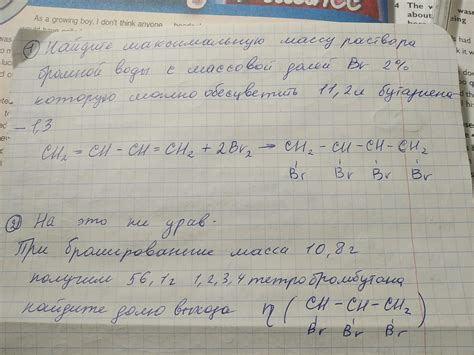 As a growing boy, I don't think anyone
4 The w
about
① Найдите максимальную массу раствора
бромной воды с массовой долей Br 2%
которую можно обесцветить 11,2л бутадиена-
-1,3
CH₂=CH-CH=CH₂ + 2Br₂ → CH₂-CH-CH-CH₂
Br Br Br Br
② На это же урав-
При бромировании масса 10,8г
получили 56,1г 1,2,3,4 тетробромбутана
найдите долю выхода η (CH-CH-CH₂)
Br Br Br